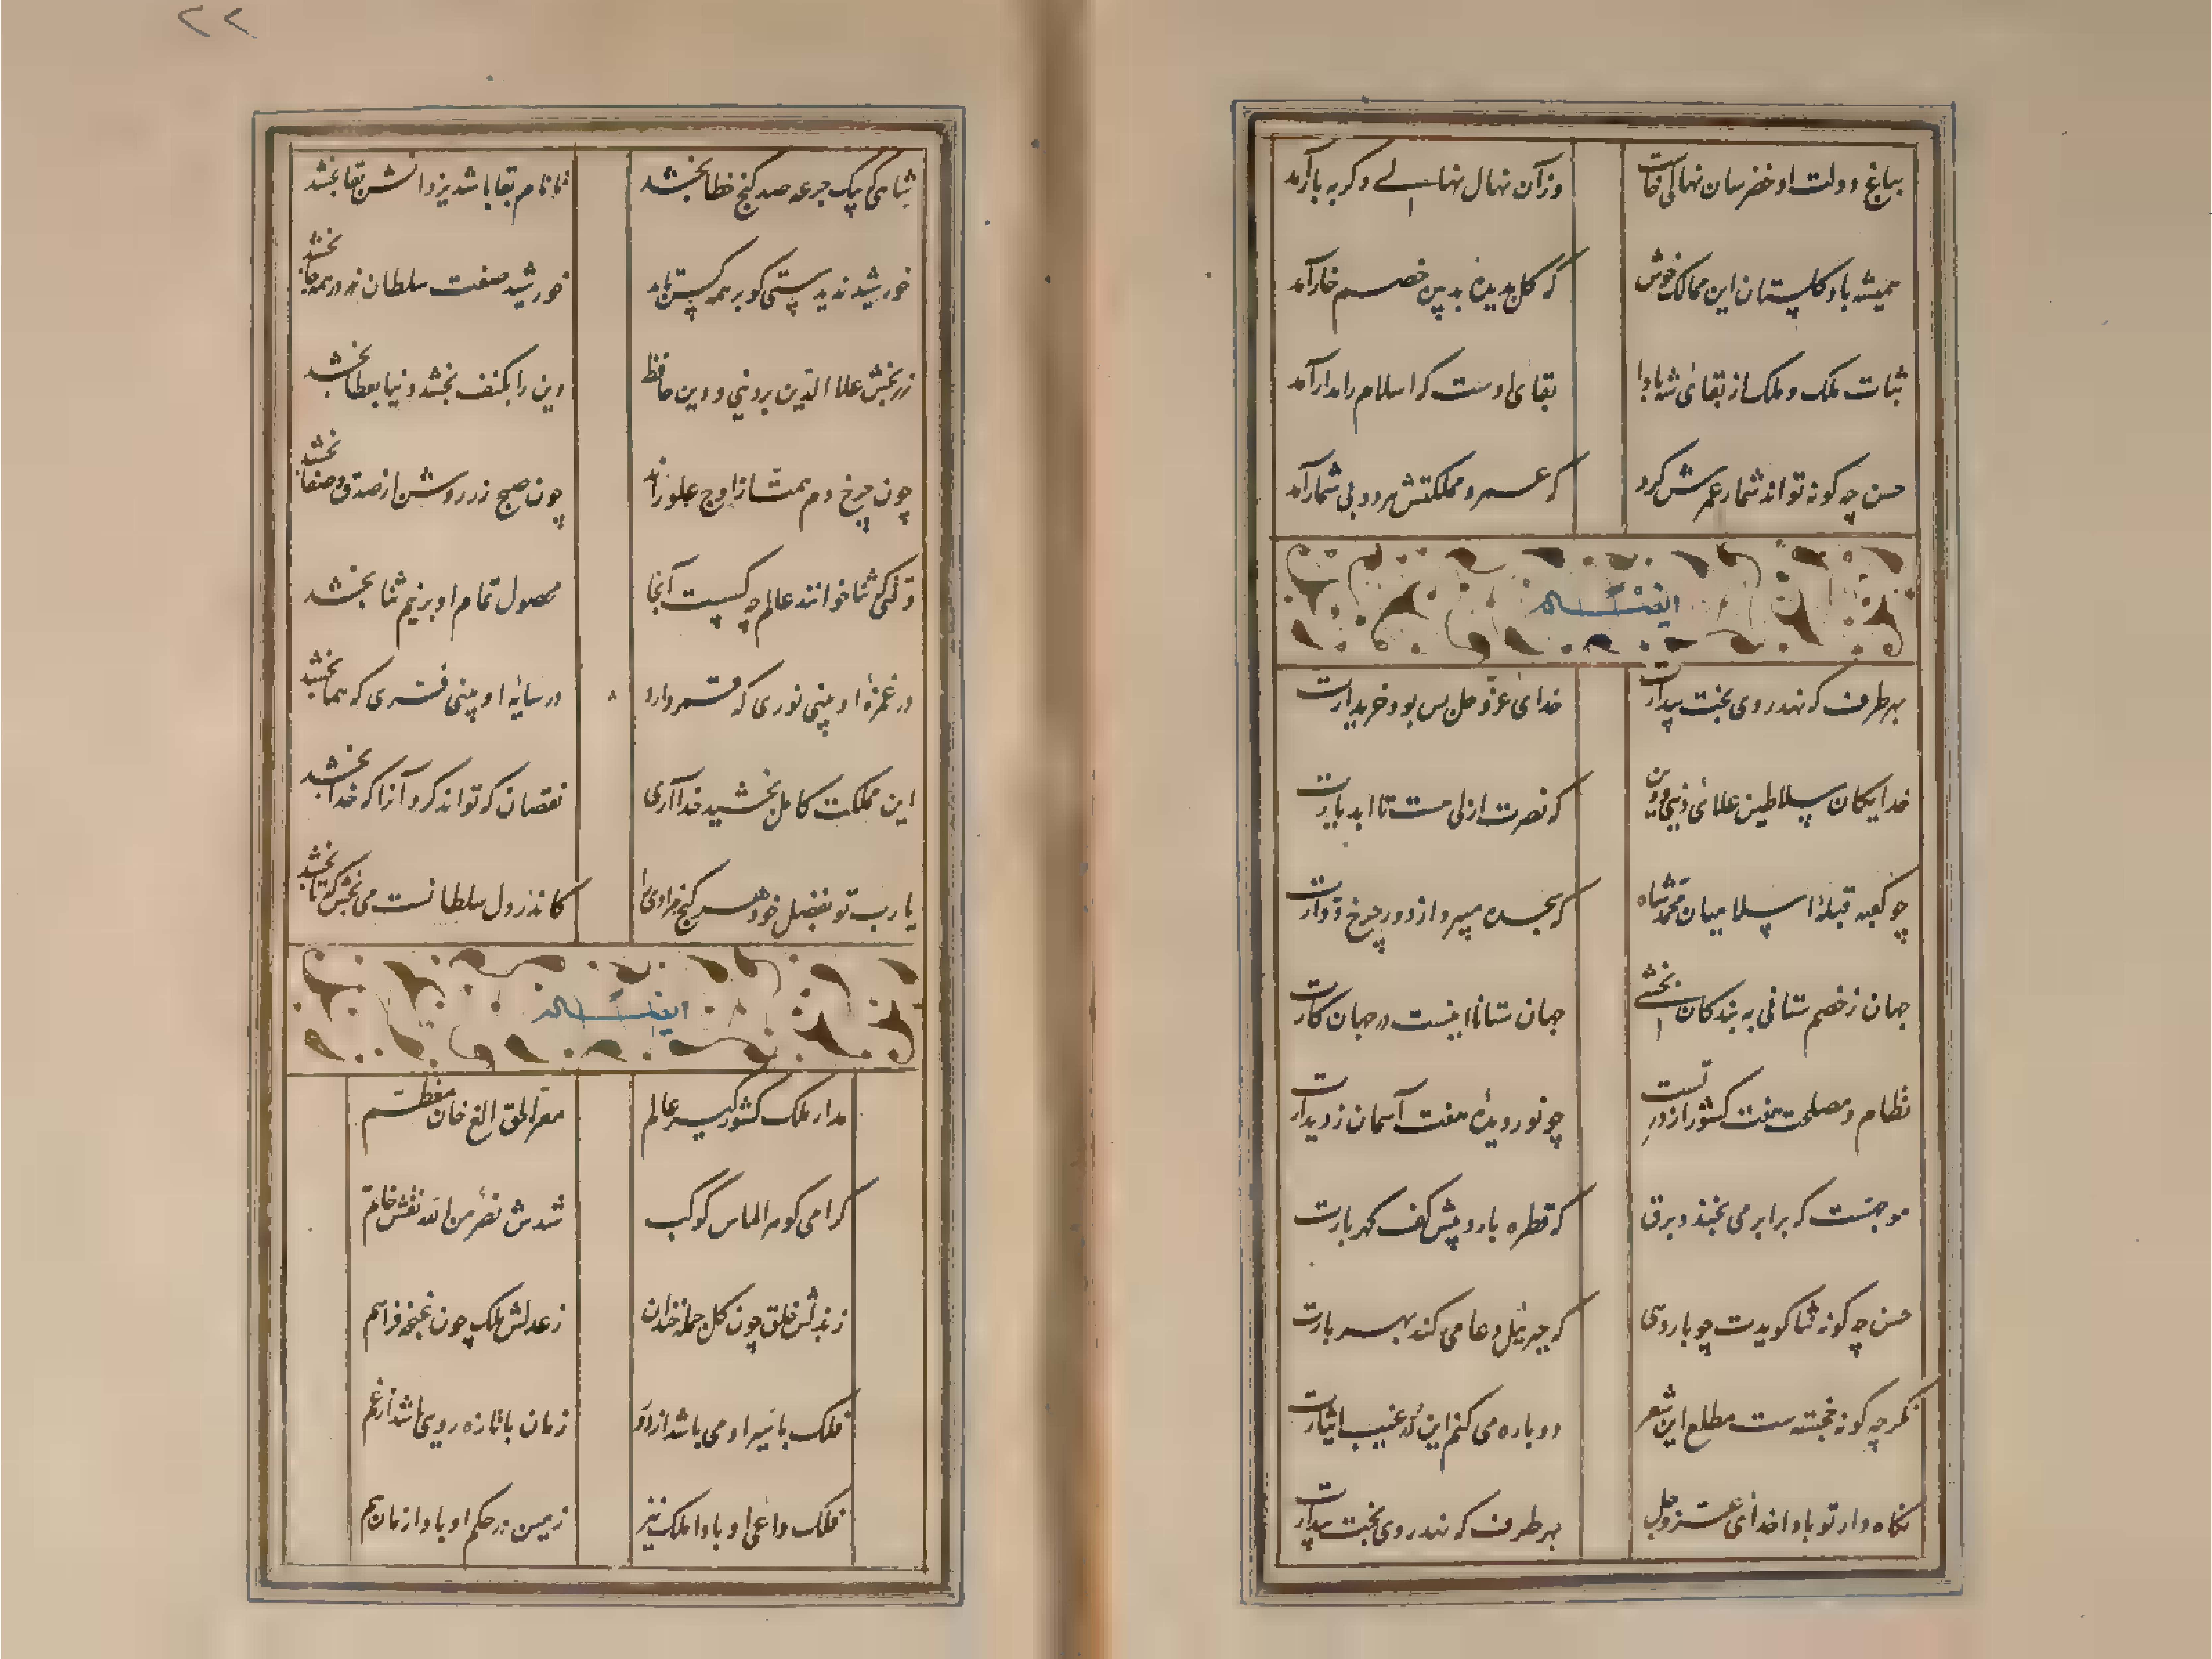 بباغ دولت او خضر سان نهالی خاست وزآن نهال نهالے دکر به بارآمد
همیشه باد کلستان این ممالک خوش که کل بدیدهٔ بدبین خصم خارآمد
ثبات ملک و ملک از بقای شه بادا بقای اوست که اسلام را مدارآمد
حسن چه کونه تواند شمار عمرش کرد که عمر و مملکتش هر دو بی شمارآمد
ایضاً له
بهر طرف که نهد روی بخت بیدارت خدای عزّ و جل بس بود خریدارت
خدایکان سلاطین علائ دنیی و دین که نصرت ازلی هست تا ابد یارت
چو کعبه قبلهٔ اسلامیان محمّد شاه که سجده میبرد از دور چرخ دوّارت
جهان ز خصم ستانی به بندکان بخشے جهان ستانا اینست در جهان کارت
نظام و مصلحت هفت کشور از در تست چو نور دیدهٔ هفت آسمان ز دیدارت
موجهست که بر ابر می بخندد برق که قطره بارد پیش کف کهربارت
حسن چه کونه ثنا کویدت چو بار دهی که جبرئیل دعا می کند بهر بارت
نکر چه کونه خجسته ست مطلع این شعر دوباره می کنم این در غیب ایثارت
نکاه دار تو بادا خدای عزّ و جل بهر طرف که نهد روی بخت بیدارت
۲۲
شاهی که بیک جرعه صد کنج خطا بخشد تا نام بقا باشد یزدانش بقا بخشد
خورشید ندیدستی کو بر همه کس تابد خورشید صفت سلطان زر در همه جا بخشد
زر بخش علاا الدّین بر دنیی و دین حافظ دین را بکنف بخشد دنیا بعطا بخشد
چون چرخ دم همّت از اوج علو راند چون صبح زر روشن از صدق و صفا بخشد
وقتی که ثنا خوانند عالم چه کسیست آنجا محصول تمام او بر نیم ثنا بخشد
در غمزهٔ او بینی نوری که قمر دارد در سایهٔ او بینی فرّی که هما بخشد
این مملکت کامل بخشید خدا آری نقصان که تواند کرد آنرا که خدا بخشد
یا رب تو بفضل خود هر کنج مرادی را کاندر دل سلطانست می بخش که تا بخشد
ایضاً له
مدار ملک کشورکیر عالم معزّ الحق الغ خان معظّم
کرامی کوهر الماس کوکب شدش نصر من الله نقش خاتم
ز بذلش خلق چون کل جمله خندان ز عدلش ملک چون غنچه فراهم
فلک با تیر او می باشد از دور زمان با تازه روی باشد از غم
فلک داعی او بادا ملک نیز زمین در حکم او باد ازمان هم